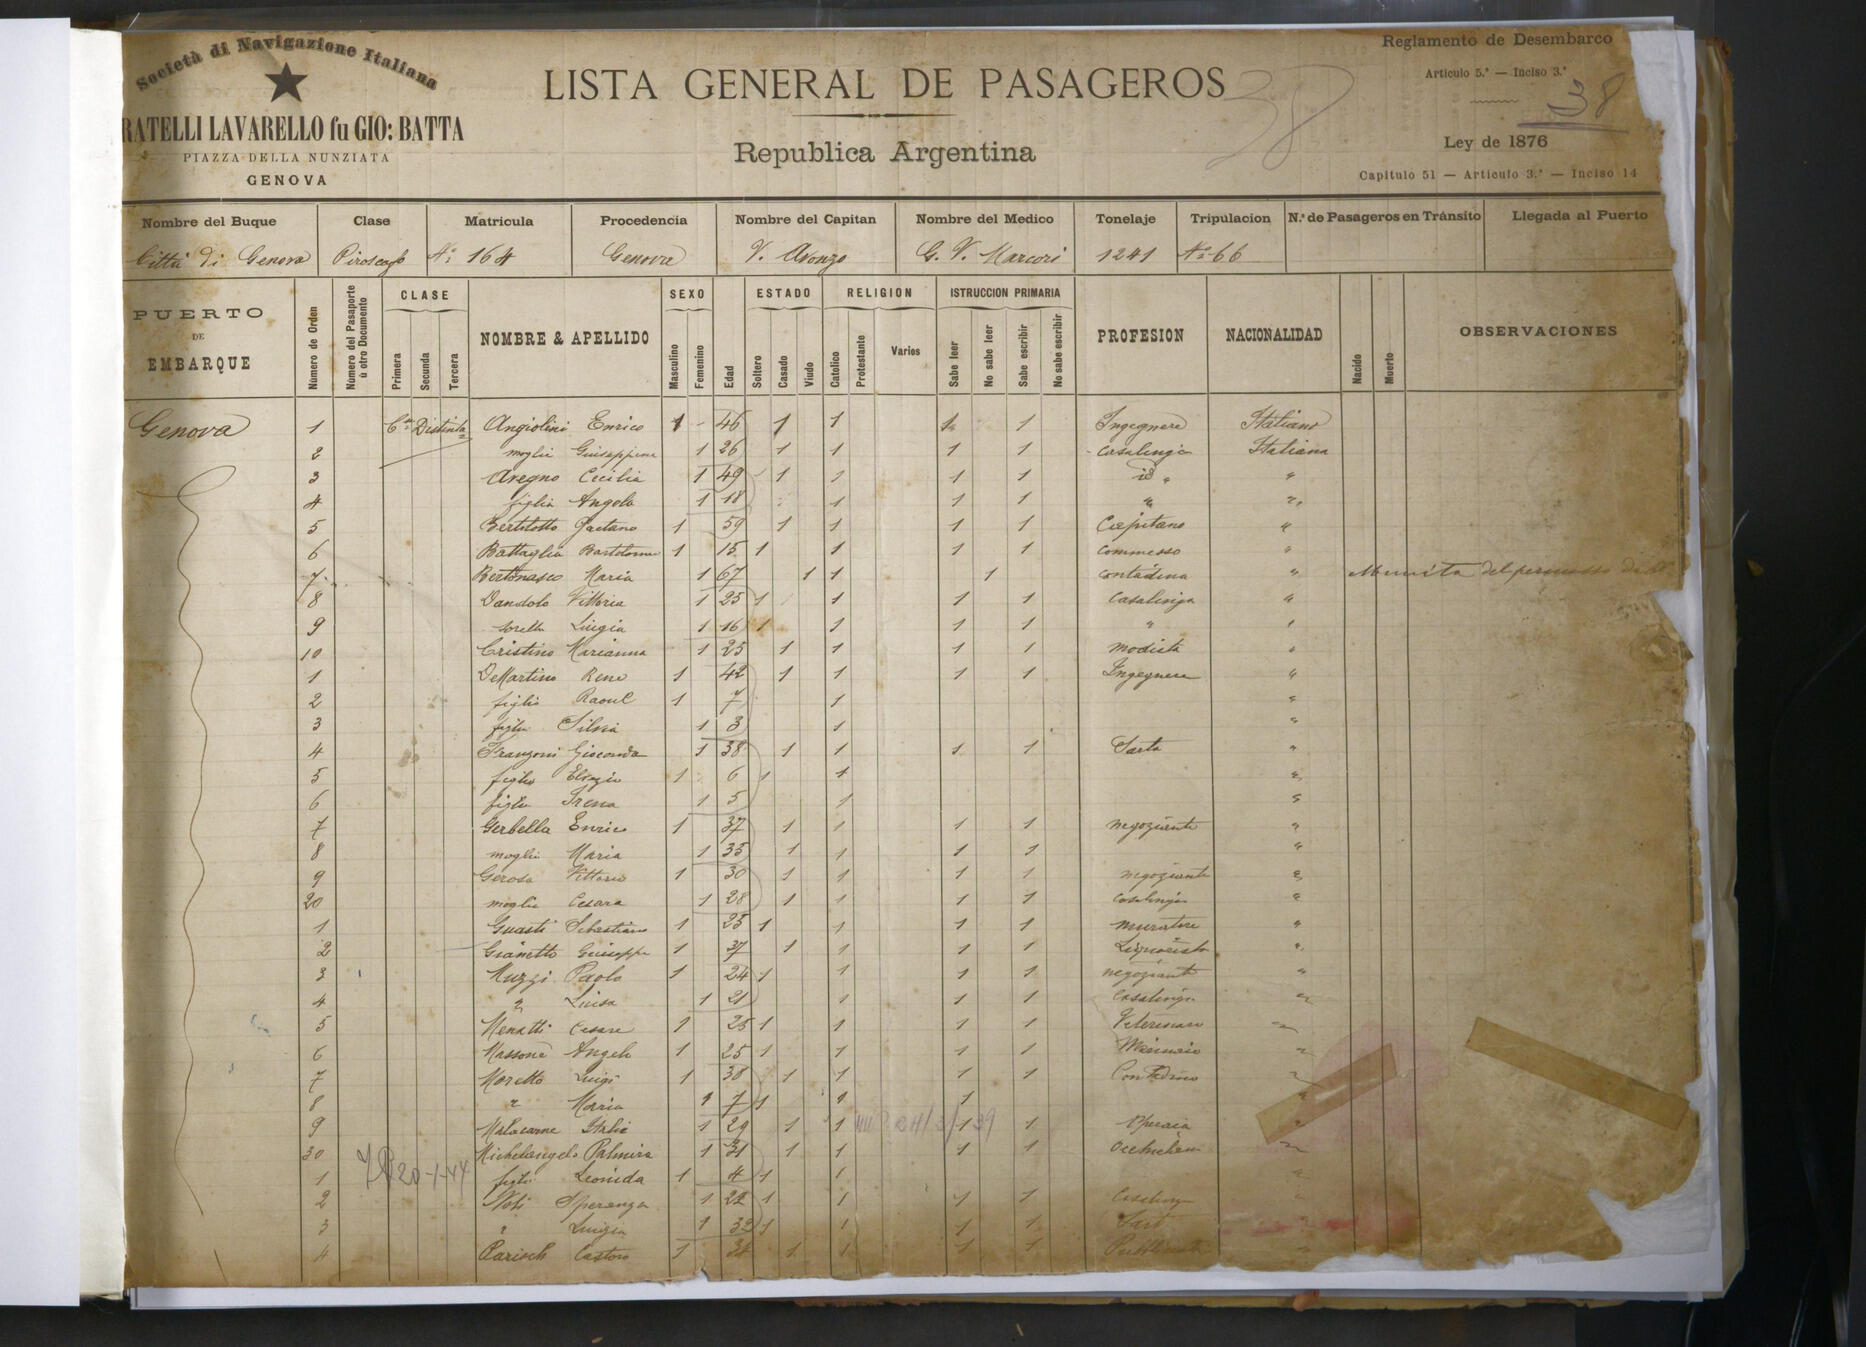 Società di Navigazione Italiana
RATELLI LAVARELLO fu GIO: BATTA
PIAZZA DELLA NUNZIATA
GENOVA
LISTA GENERAL DE PASAGEROS
Republica Argentina
38
Reglamento de Desembarco
Articulo 5.° — Inciso 3.°
38
Ley de 1876
Capitulo 51 — Articulo 3.° — Inciso 14
Nombre del Buque Clase Matricula Procedencia Nombre del Capitan Nombre del Medico Tonelaje Tripulacion N.° de Pasageros en Tránsito Llegada al Puerto
Città di Genova Piroscafo N.° 164 Genova V. Avonzo G. V. Marcori 1241 N.° 66
PUERTO DE EMBARQUE Número de Orden Número del Pasaporte ú otro Documento CLASE Primera Secunda Tercera NOMBRE & APELLIDO SEXO Masculino Femenino Edad ESTADO Soltero Casado Viudo RELIGION Catolico Protestante Varios ISTRUCCION PRIMARIA Sabe leer No sabe leer Sabe escribir No sabe escribir PROFESION NACIONALIDAD Nacido Muerto OBSERVACIONES
Genova 1 Cl. Distinta Angiolini Enrico 1 46 1 1 1 1 Ingegnere Italiano
2 moglie Giuseppina 1 26 1 1 1 1 casalinga Italiana
3 Aregno Cecilia 1 49 1 1 1 1 id "
4 figlia Angela 1 18 1 1 1 " "
5 Bertolotto Gaetano 1 59 1 1 1 1 Capitano "
6 Battaglia Bartolomeo 1 15 1 1 1 1 commesso "
7 Bertonasco Maria 1 67 1 1 1 contadina " Munita del permesso
8 Dandolo Vittoria 1 25 1 1 1 1 Casalinga "
9 sorella Luigia 1 16 1 1 1 1 " "
10 Cristino Marianna 1 25 1 1 1 1 modista "
1 DeMartino Rene 1 42 1 1 1 1 Ingegnere "
2 figlio Raoul 1 7 1 "
3 figlia Silvia 1 3 1 "
4 Franzoni Gioconda 1 38 1 1 1 1 Sarta "
5 figlio 1 6 1 1 "
6 figlia Irena 1 5 1 "
7 Gerbella Enrico 1 37 1 1 1 1 negoziante "
8 moglie Maria 1 35 1 1 1 1 "
9 Gerosa Vittorio 1 30 1 1 1 1 negoziante "
20 moglie Cesara 1 28 1 1 1 1 casalinga "
1 Guasti Sebastiano 1 25 1 1 1 1 muratore "
2 Gianetto Giuseppe 1 37 1 1 1 1 Liquorista "
3 Muzzi Paolo 1 24 1 1 1 1 negoziante "
4 " Luisa 1 21 1 1 1 casalinga "
5 Menatti Cesare 1 25 1 1 1 1 Veterinario "
6 Massone Angelo 1 25 1 1 1 1 Marinaio "
7 Moretto Luigi 1 38 1 1 1 1 Contadino "
8 " Maria 1 7 1 1 1 "
9 Malacarne Italia 1 29 1 1 1 1 operaia "
30 Michelangelo Palmira 1 31 1 1 1 1 "
1 figlio Leonida 1 4 1 1 "
2 Noli Speranza 1 22 1 1 1 1 Casalinga "
3 " Luigia 1 32 1 1 1 1 Sart "
4 Parisch Castoro 1 1 1 1 1
20-1-44